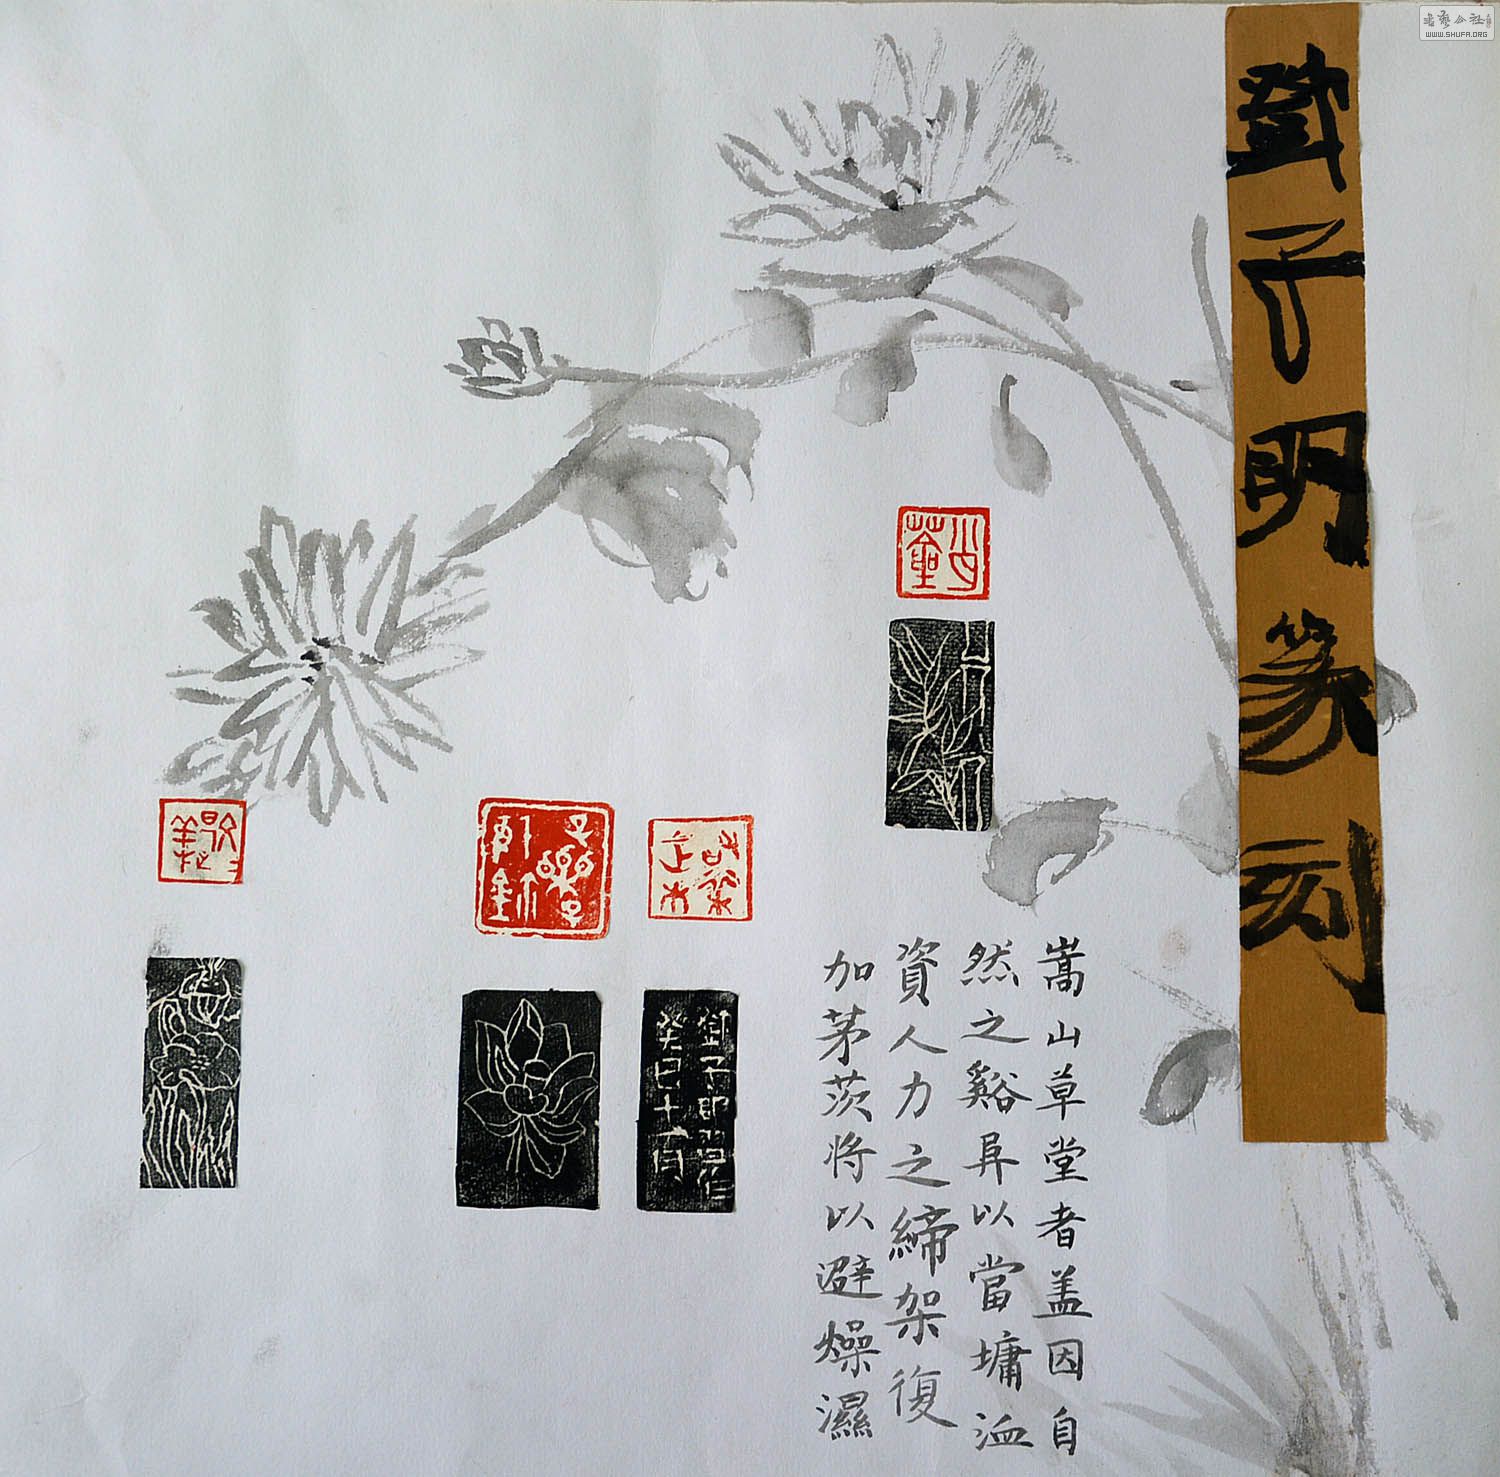 鄧子明篆刻
嵩山草堂者蓋因自
然之谿阜以當墉洫
資人力之締架復
加茅茨將以避燥濕
鄧子明
癸巳十月
書藝公社
WWW.SHUFA.ORG